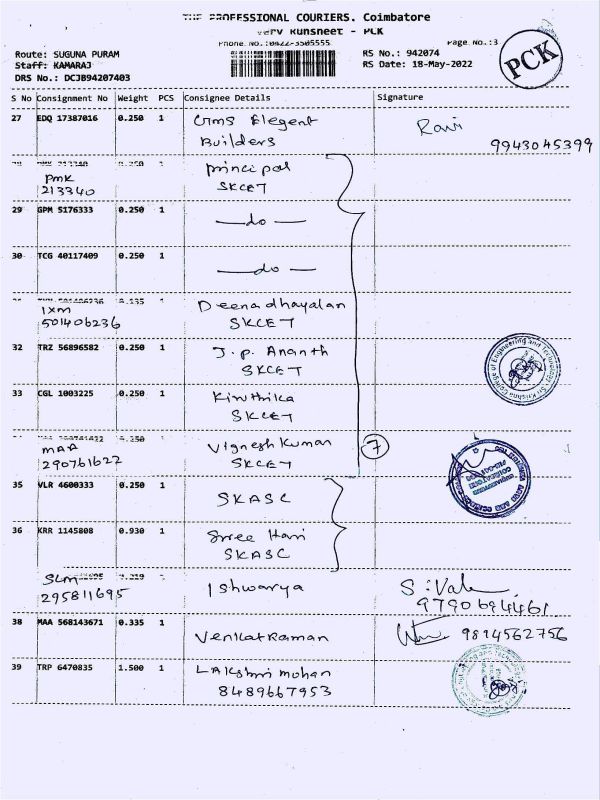 THE PROFESSIONAL COURIERS. Coimbatore
Runsheet - PCK
Phone No.:0422-3505555
Page No.:3
PCK
Route: SUGUNA PURAM
Staff: KAMARAJ
DRS No.: DCJ894207403
RS No.: 942074
RS Date: 18-May-2022
S No Consignment No Weight PCS Consignee Details Signature
27 EDQ 17387016 0.250 1 Builders Ravi
9943045399
PMK 213340 Principal SKCET
29 GPM 5176333 0.250 1 —do—
30 TCG 40117409 0.250 1 —do—
IXM 501406236 1 Deenadhayalan SKCET
32 TRZ 56896582 0.250 1 J.p. Ananth SKCET
33 CGL 1003225 0.250 1 Kiruthika SKCET
MAA 290761622 Vignesh Kumar SKCET
7
35 VLR 4600333 0.250 1 SKASC
36 KRR 1145808 0.930 1 Sree Hari SKASC
SLM 295811695 Ishwarya
9790694461
38 MAA 568143671 0.335 1 Venkatraman
9814562756
39 TRP 6470835 1.500 1 Lakshmi mohan
8489667953
Sri Krishna College of Engineering and Technology